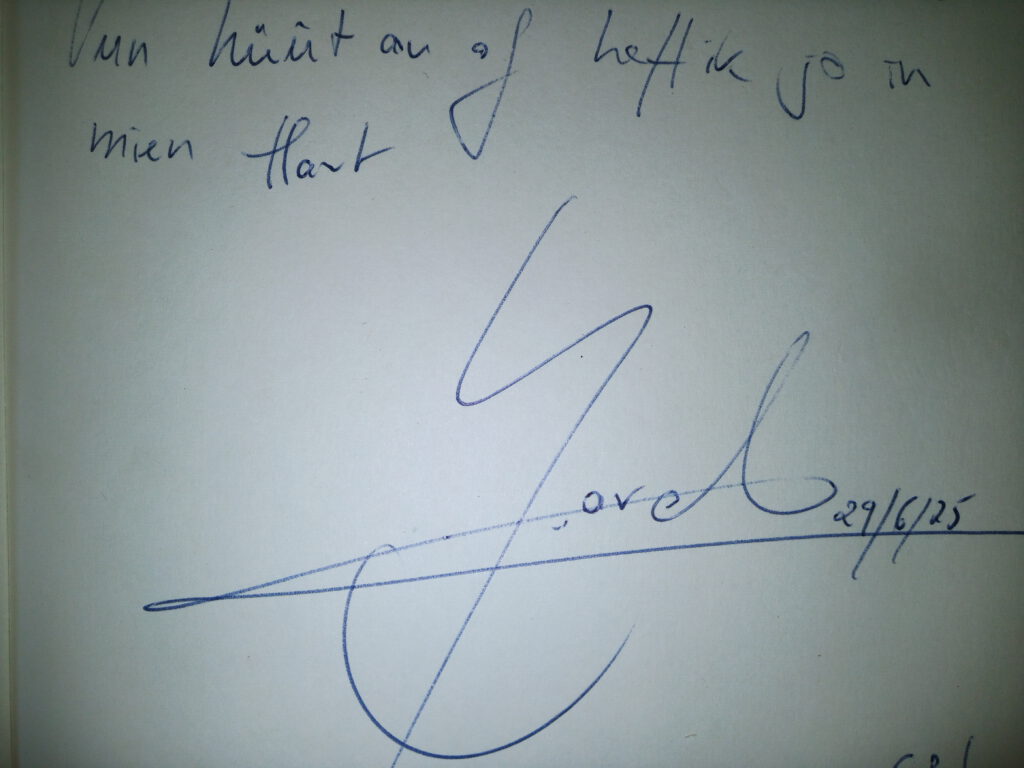 Vun hüüt an of heff ik jo in
mien Hart
29/6/25